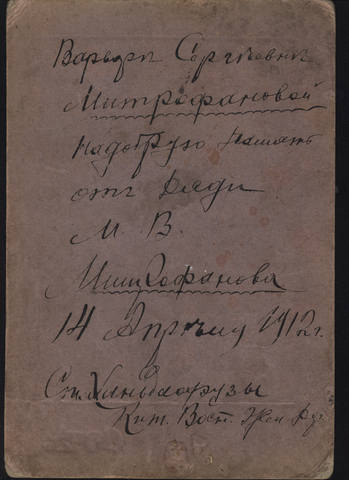 Варвѣрѣ Сергѣевнѣ
Митрофановой
на добрую память
отъ дяди
М. В.
Митрофанова
14 Апрѣля 1912 г.
Ст. Ханьдаохэзы
Кит. Вост. Жел. Дор.